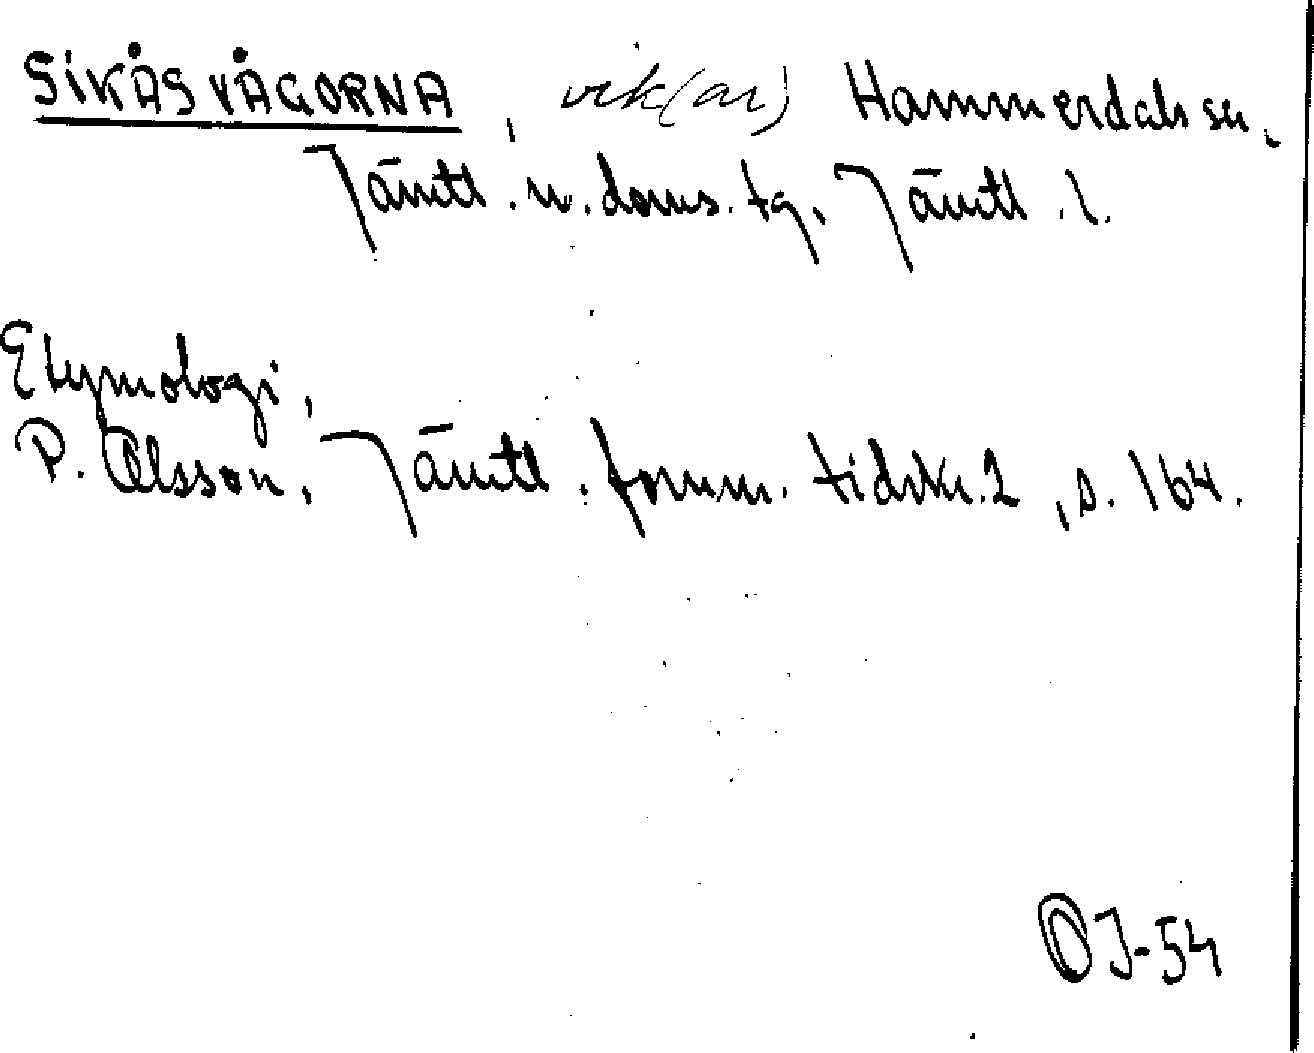 SIKÅSVÅGORNA, vik(ar) Hammerdals sn,
Jämtl. n. doms. tg, Jämtl. l.
Etymologi,
P. Olsson, Jämtl. fornm. tidskr. 2, s. 164.
OJ-54